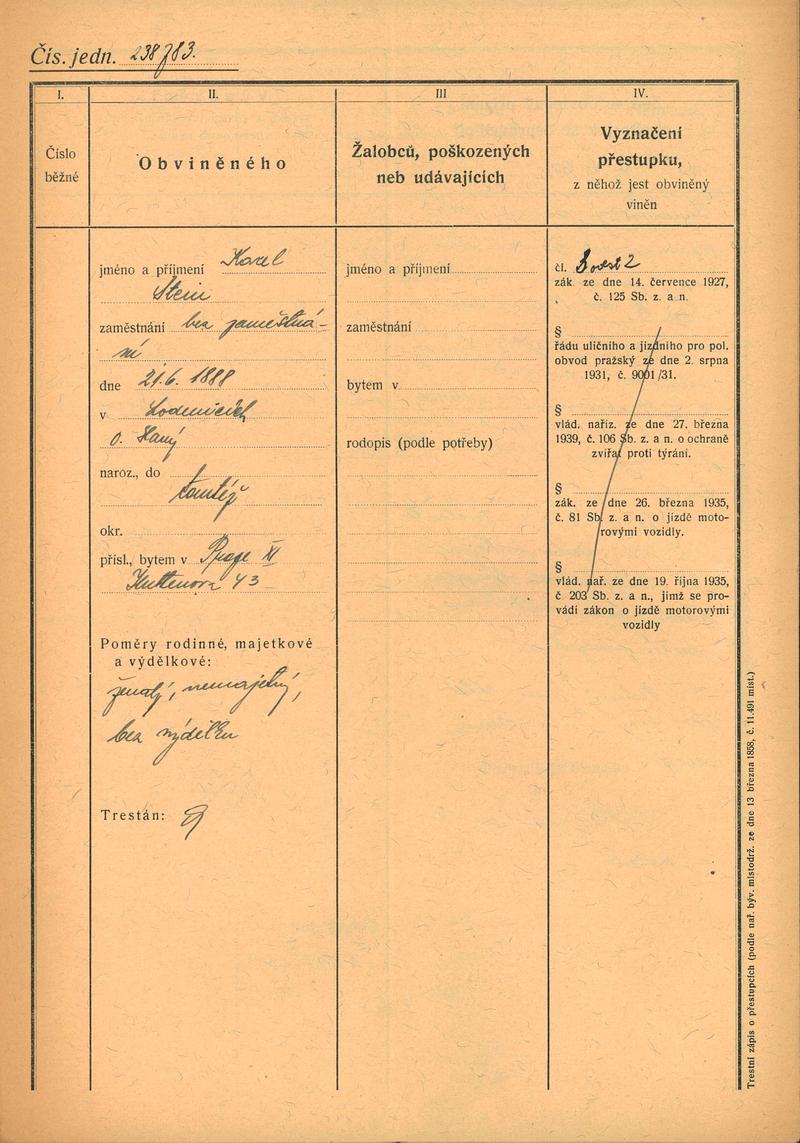 Čís. jedn. 238783.
I.
Číslo
běžné
II.
Obviněného
III
Žalobců, poškozených
neb udávajících
IV.
Vyznačení
přestupku,
z něhož jest obviněný
viněn
jméno a příjmení Karel
Stein
zaměstnání bez zaměstná-
ní
dne 21.6. 1888
v
o. Haný
naroz., do
tamtéž
okr.
přísl., bytem v Praze XI
43
Poměry rodinné, majetkové
a výdělkové:
ženatý, nemajetný,
bez výdělku
Trestán:
jméno a příjmení
zaměstnání
bytem v
rodopis (podle potřeby)
čl. 3 odst 2
zák. ze dne 14. července 1927,
č. 125 Sb. z. a n.
§
řádu uličního a jízdního pro pol.
obvod pražský ze dne 2. srpna
1931, č. 9001/31.
§
vlád. naříz. ze dne 27. března
1939, č. 106 Sb. z. a n. o ochraně
zvířat proti týrání.
§
zák. ze dne 26. března 1935,
č. 81 Sb. z. a n. o jízdě moto-
rovými vozidly.
§
vlád. nař. ze dne 19. října 1935,
č. 203 Sb. z. a n., jímž se pro-
vádí zákon o jízdě motorovými
vozidly
Trestní zápis o přestupcích (podle nař. býv. místodrž. ze dne 13 března 1858, č. 11.491 míst.)